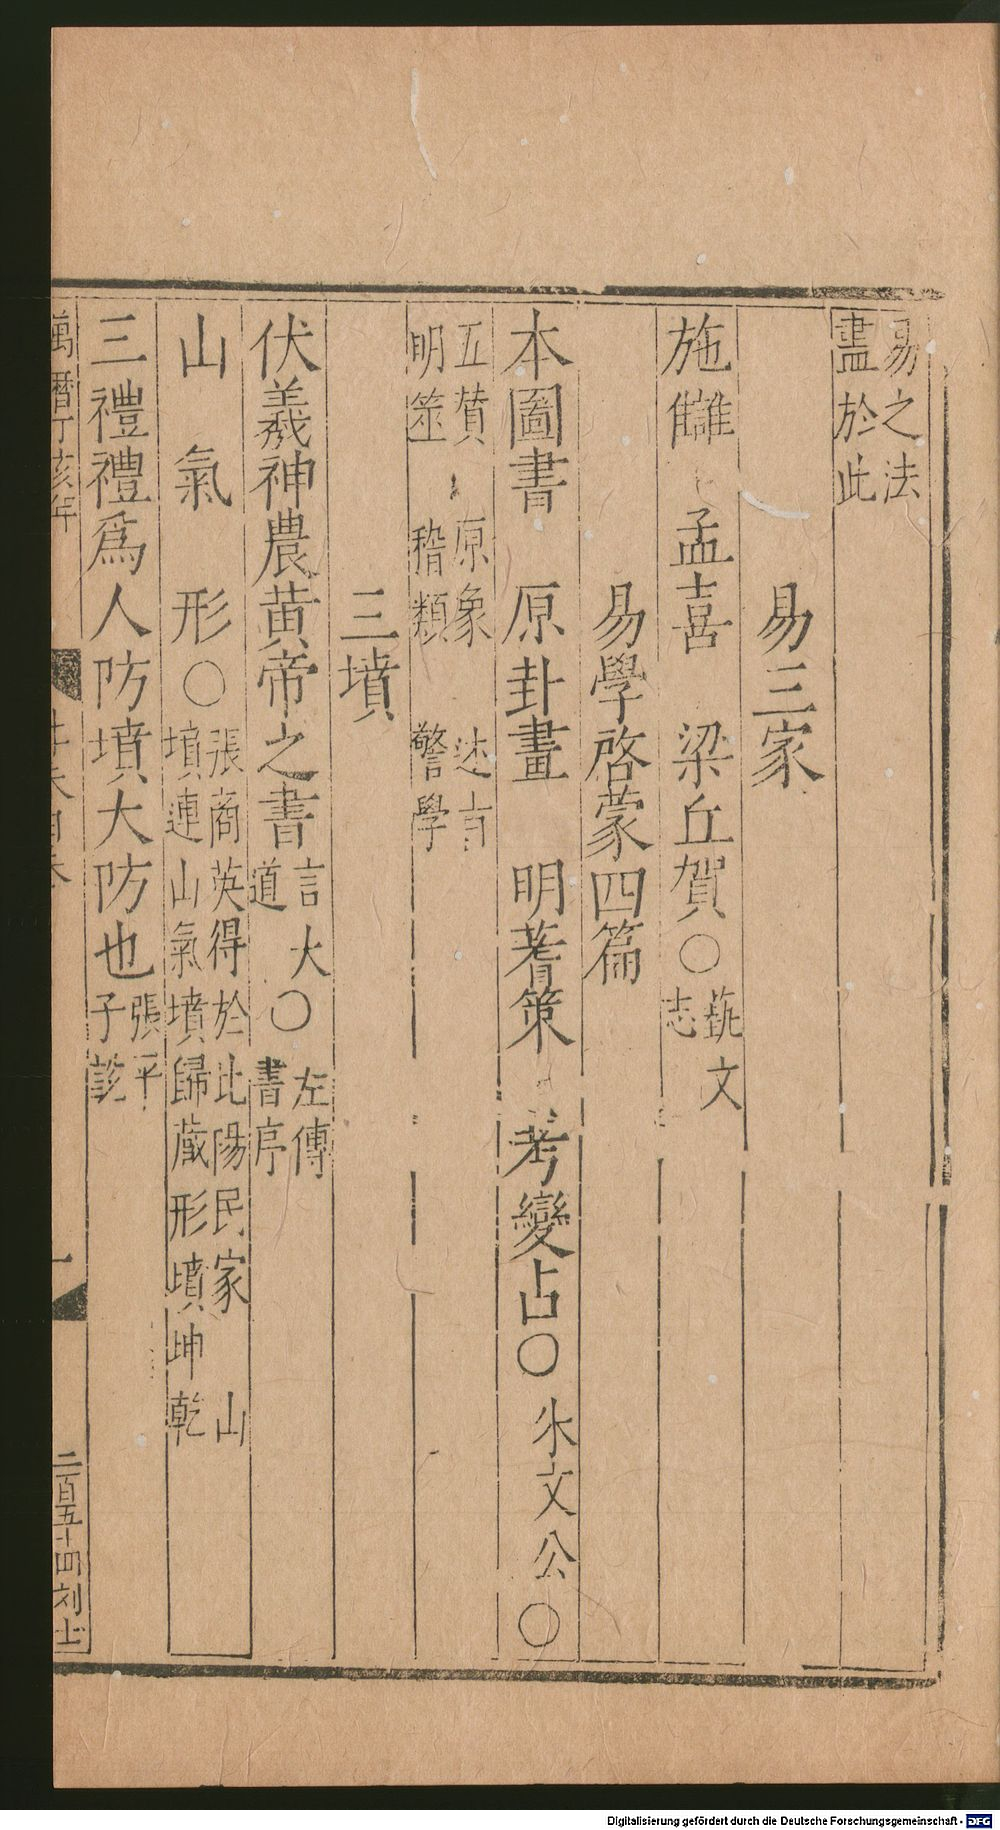 易之法
盡於此
易三家
施讎 孟喜 梁丘賀○藝文志
易學啓蒙四篇
本圖書 原卦畫 明蓍策 考變占○朱文公○
五賛 原象 述旨
明筮 稽類 警學
三墳
伏羲神農黃帝之書言大道○左傳書序
山 氣 形○張商英得於比陽民家 山墳連山氣墳歸藏形墳坤乾
三禮禮爲人防墳大防也張平子說
萬曆丁亥年
二百五十四刘士
Digitalisierung gefördert durch die Deutsche Forschungsgemeinschaft - DFG